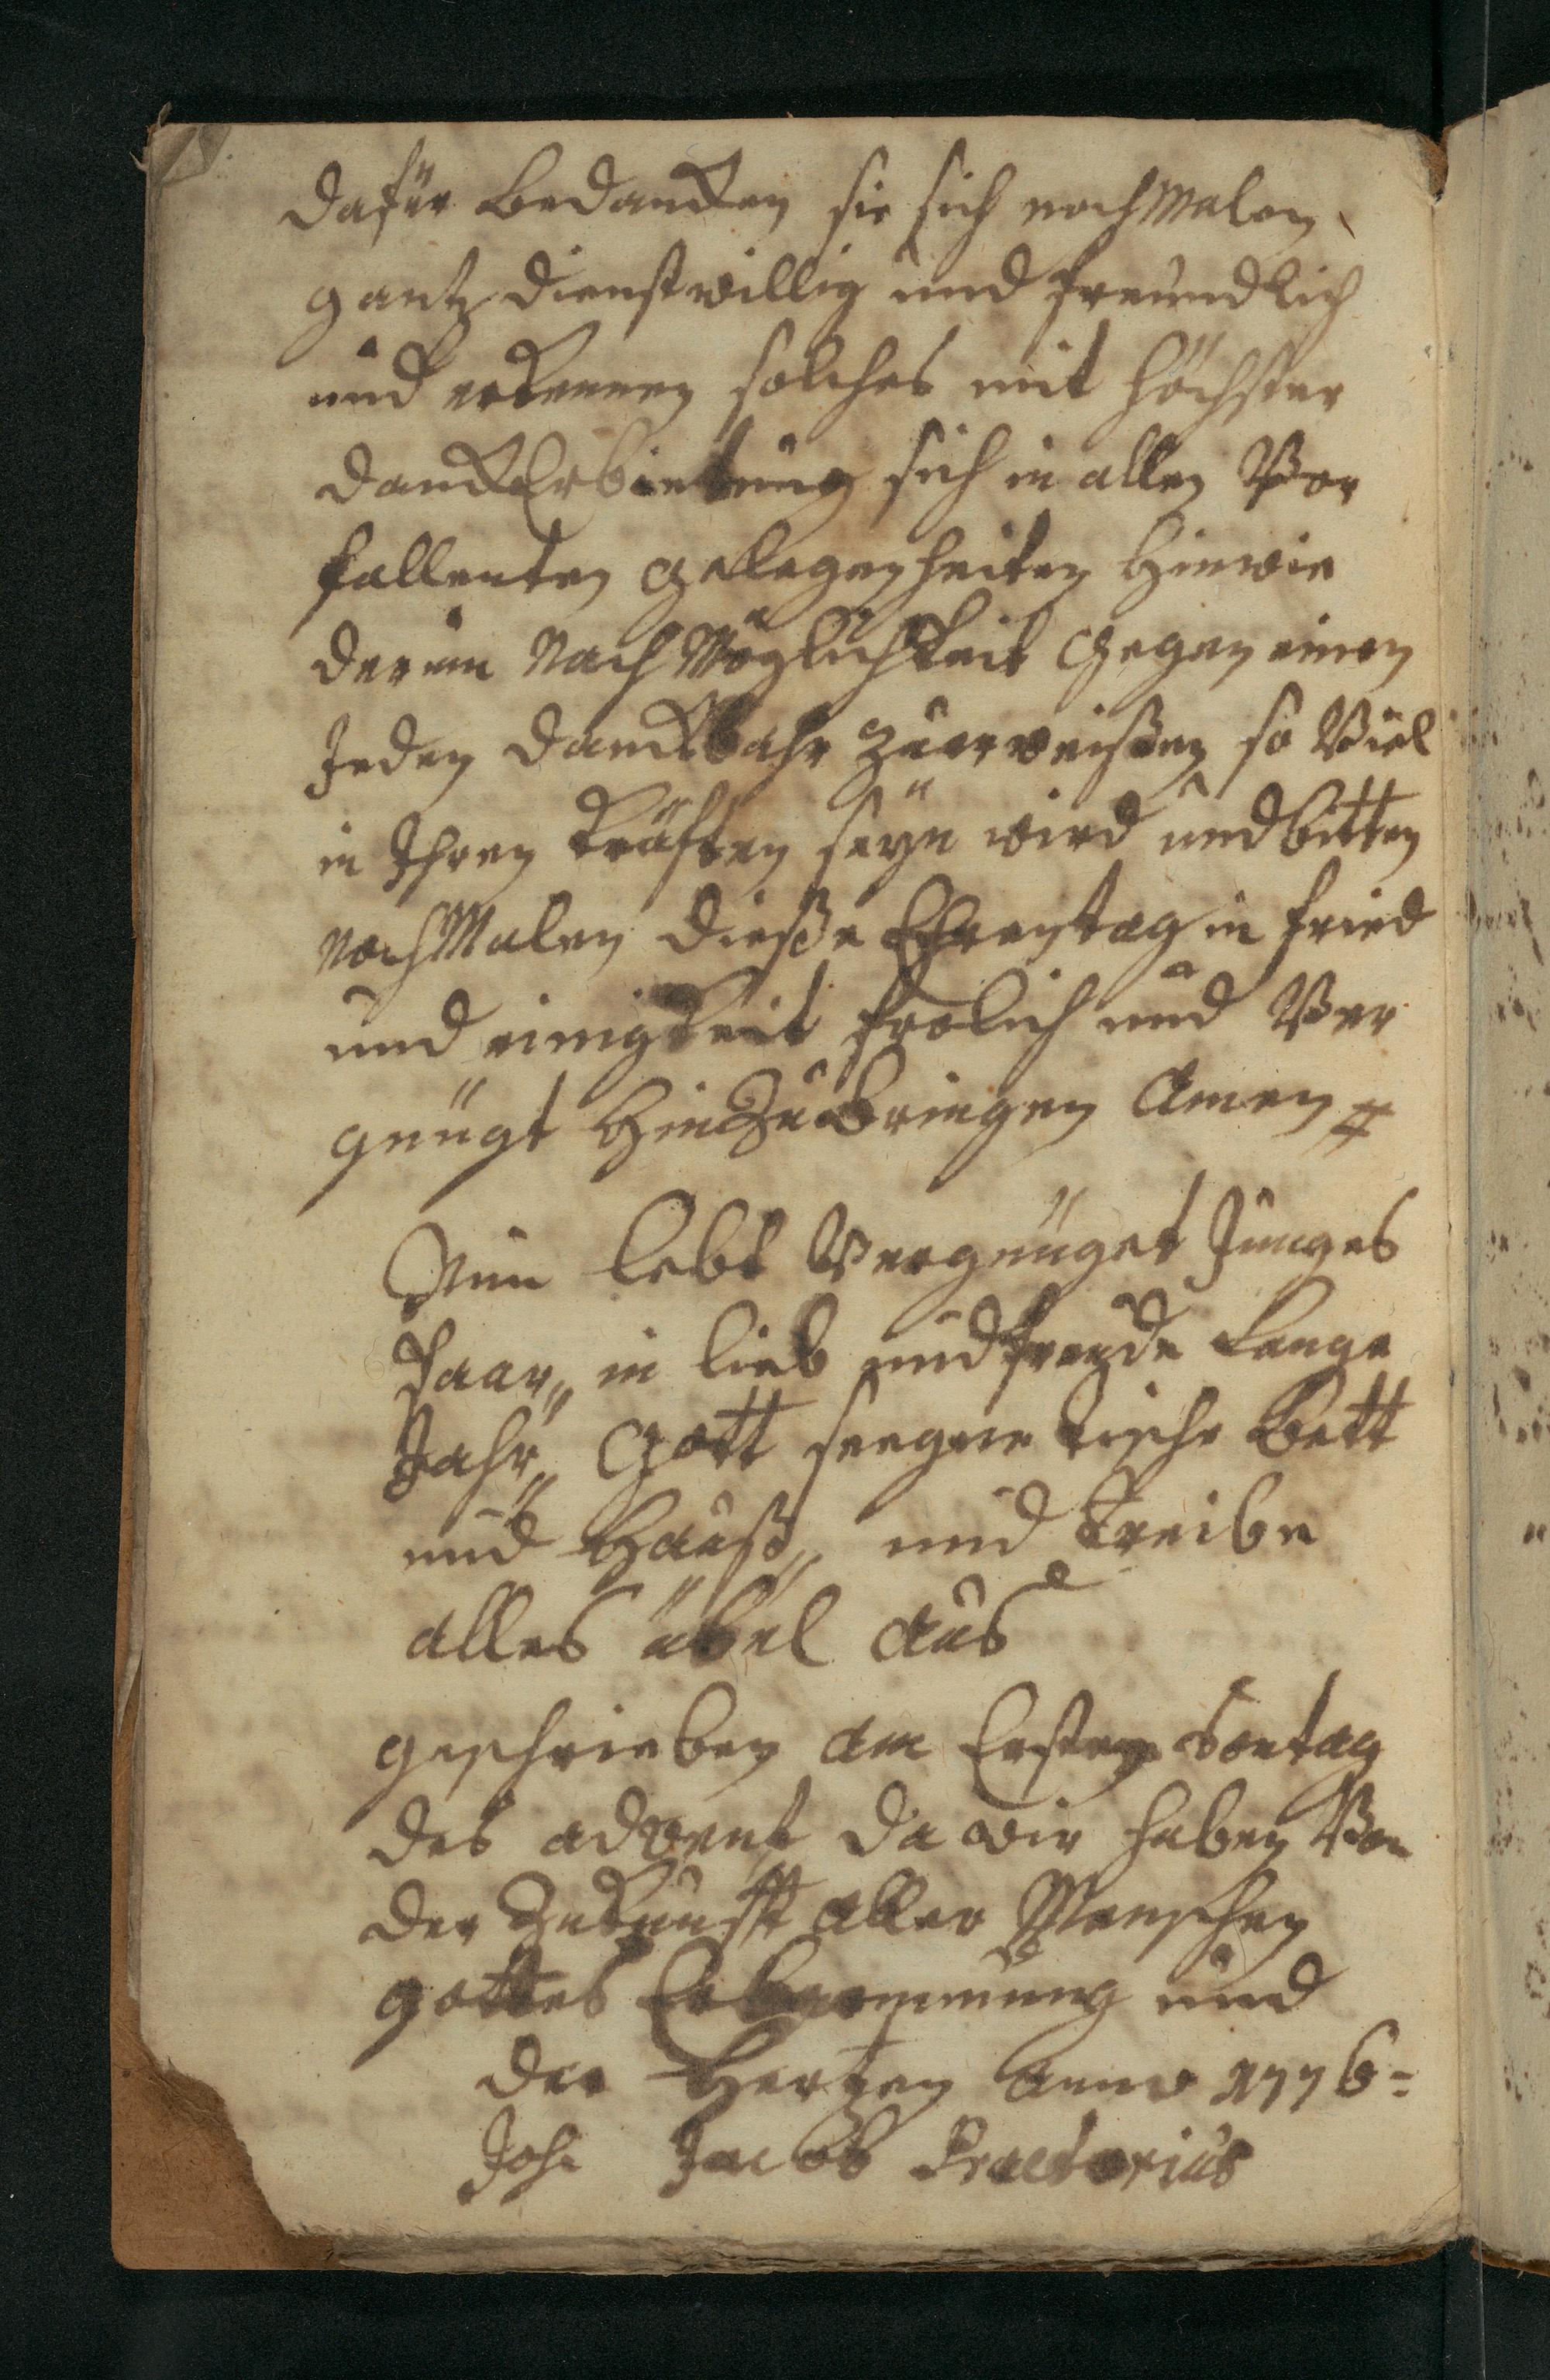 dafür bedancken sie sich nochmalen
gantz dienstwillig und freundlich
und erkennen solches mit höchster
danck Erbietung sich in allen Vor
fallenten gelegenheiten hinwie
derum Nach Möglichkeit Gegen einen
Jeden danckbahr zuerweißen so Viel
in Ihren kräften seyn wird und bitten
NochMalen dieße Ehrentag in fried
und einigkeit frolich und Ver
gnügt hinzubringen Amen
Nun lebt Vergnüget Junges
Paar„ in lieb und freude lange
Jahr„ Gott seegne tische bett
und Hauß„ und treibe
alles übel aus
geschrieben am Ersten Sontag
des advent da wir haben Von
der Zukunfft aller Menschen
gottes Erbarmmung und
der Hertzen anno 1776=
Joh: Jacob Praetorius